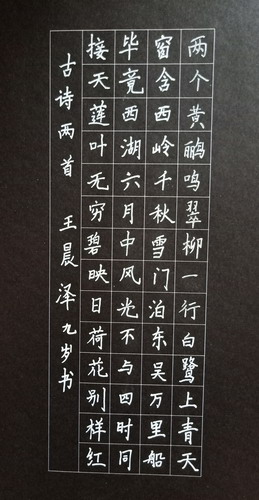 两个黄鹂鸣翠柳一行白鹭上青天
窗含西岭千秋雪门泊东吴万里船
毕竟西湖六月中风光不与四时同
接天莲叶无穷碧映日荷花别样红
古诗两首 王晨泽九岁书